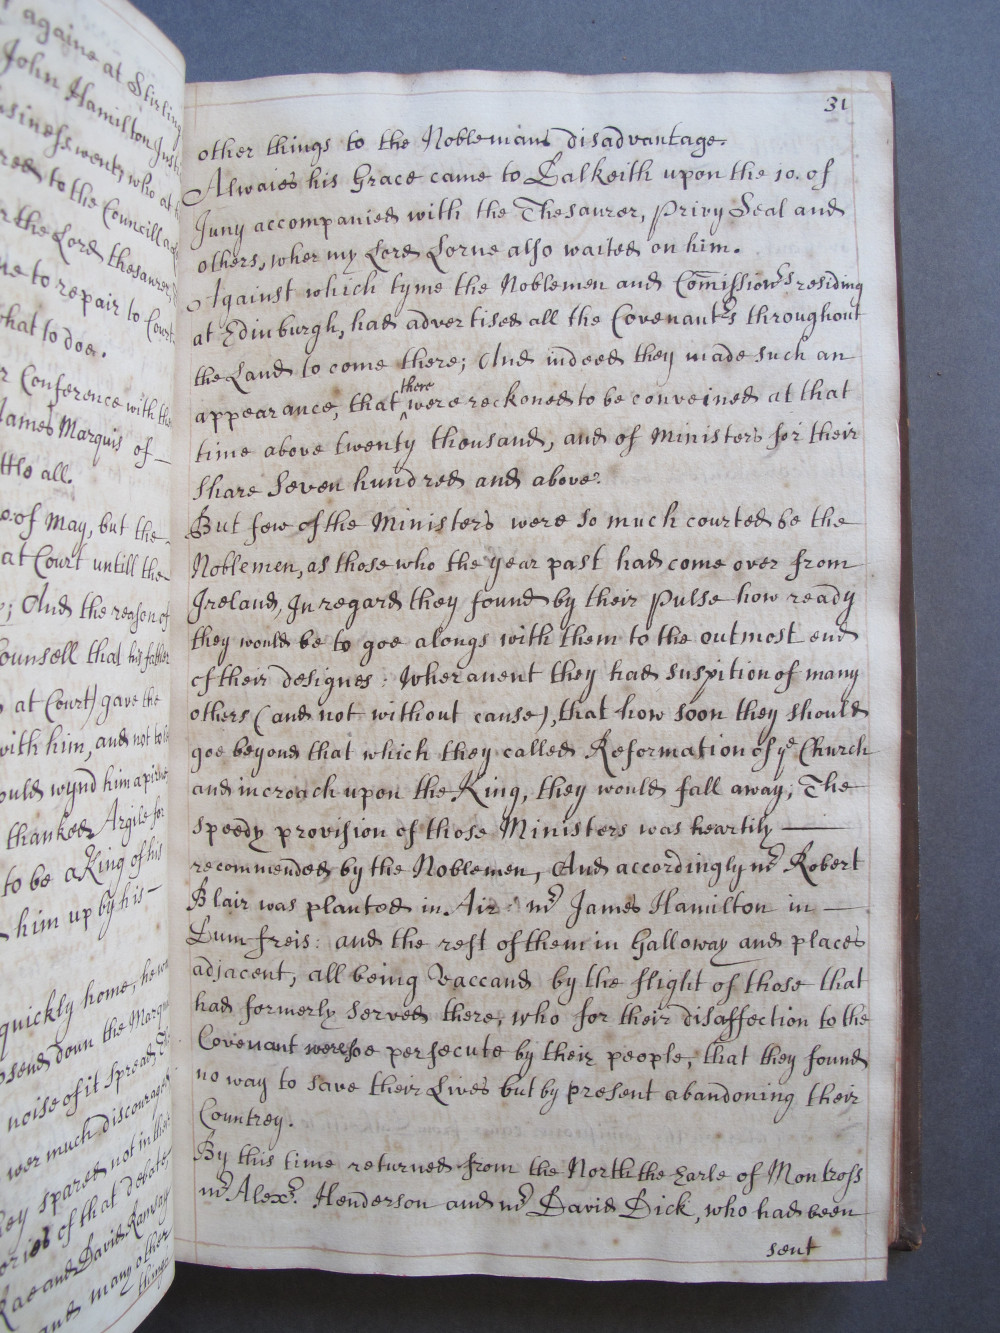 againe at Stirling
John Hamilton Just
siness went, who at
red to the Councill a
r the Lord thesaurer
ne to repair to Court
what to doe.
r Conference with the
James Marquis of
ttlo all.
of May, but the
at Court untill the
; And the reason of
ounsell that his father
at Court) gave the
with him, and not to
ould wynd him a pirne
thanked Argile for
to be a King of his
him up by his
quickly home, he
send doun the Marq
noise of it spread,
wer much discouraged
ey spared not in their
ories of that debate,
Rae and David Ramsay
and many other
things
31
other things to the Noblemans disadvantage.
Alwaies his Grace came to Dalkeith upon the 10. of
Juny accompanied with the Thesaurer, Privy Seal and
others, wher my Lord Lorne also waited on him.
Against which tyme the Noblemen and Comissionrs residing
at Edinburgh, had advertised all the Covenantrs throughout
the Land to come there; And indeed they made such an
appearance, that there were reckoned to be conveined at that
time above twenty thousand, and of Ministers for their
share Seven hundred and above.
But few of the Ministers were so much courted be the
Noblemen, as those who the year past had come over from
Ireland, In regard they found by their Pulse how ready
they would be to goe alongs with them to the outmost end
of their designes: Wheranent they had suspition of many
others (and not without cause), that how soon they should
goe beyond that which they called Reformation of ye Church
and incroach upon the King, they would fall away; The
speedy provision of those Ministers was heartily
recommended by the Noblemen, And accordingly mr Robert
Blair was planted in Air: mr James Hamilton in
Dumfreis: and the rest of them in Galloway and places
adjacent, all being vaccand by the flight of those that
had formerly served there, who for their disaffection to the
Covenant were soe persecute by their people, that they found
no way to save their Lives but by present abandoning their
Countrey.
By this time returned from the North the Earle of Montross
mr Alexr. Henderson and mr David Dick, who had been
sent